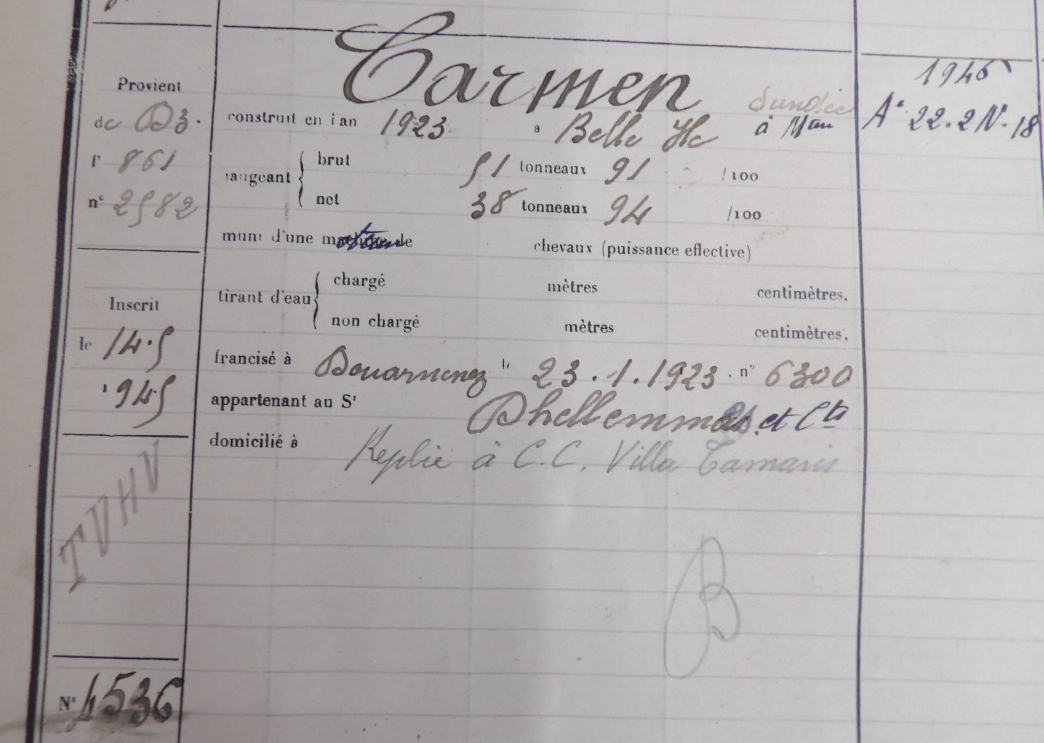 Carmen
Provient
de D3.
f° 861
n° 2582
construit en l'an 1923 à Belle Ile
Dundée
à Mteur
1945
A° 22.2 N. 18
jaugeant
brut 51 tonneaux 91 /100
net 38 tonneaux 94 /100
muni d'une machine de chevaux (puissance effective)
tirant d'eau
chargé mètres centimètres,
non chargé mètres centimètres,
Inscrit
le 14.5
1945
francisé à Douarnenez le 23.1.1923. n° 6300
appartenant au Sr Dhellemmes et Cts
domicilié à Replié à C.C. Villa Tamaris
TVHV
B
N° 4536